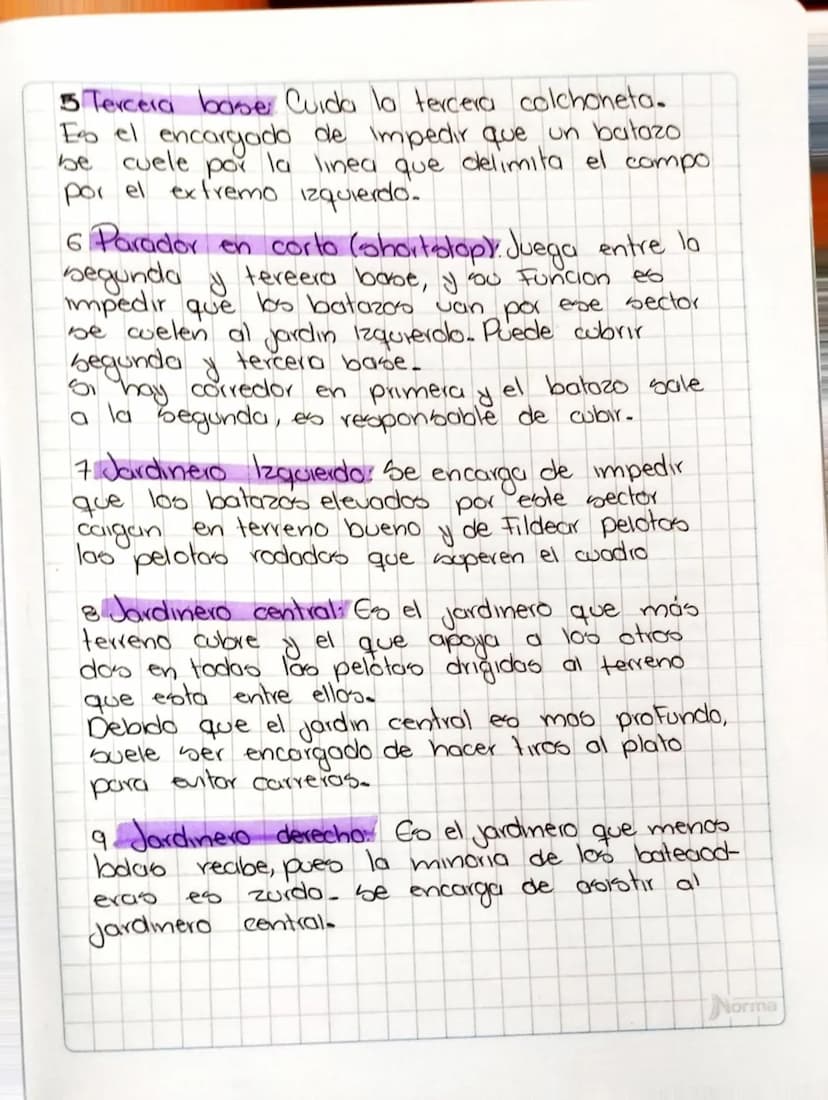 5 Tercera base: Cuida la tercera colchoneta.
Es el encargado de impedir que un batazo
se cuele por la linea que delimita el campo
por el extremo izquierdo.
6 Parador en corto (shortstop): Juega entre la
segunda y tercera base, y su Funcion es
impedir que los batazos van por ese sector
se cuelen al jardin Izquierdo. Puede cubrir
segunda y tercera base.
Si hay corredor en primera y el batazo sale
a la segunda, es responsable de cubir.
7 Jardinero Izquierdo: Se encarga de impedir
que los batazos elevados por este sector
caigan en terreno bueno y de Fildear pelotas
las pelotas rodadas que superen el cuadro
8 Jardinero central: Es el jardinero que más
terreno cubre y el que apoya a los otros
dos en todas las pelotas drigidas al terreno
que esta entre ellos.
Debido que el jardin central es mas profundo,
suele ser encargado de hacer tiros al plato
para evitar carreras.
9. Jardinero derecho: Es el jardinero que menos
bolas recibe, pues la minoria de los bateaod-
eras es zurdo. se encarga de asistir al
jardinero central.
Norma